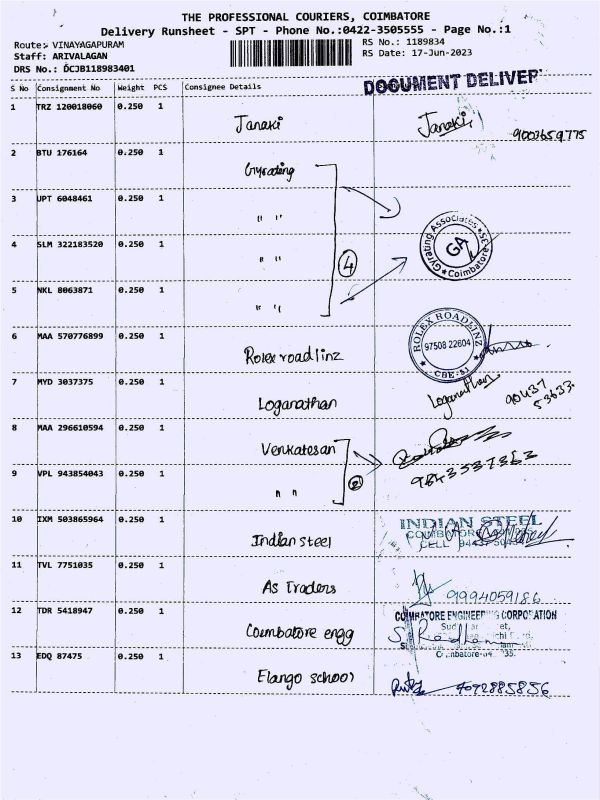 THE PROFESSIONAL COURIERS, COIMBATORE
Delivery Runsheet - SPT - Phone No.:0422-3505555 - Page No.:1
Route:- VINAYAGAPURAM
Staff: ARIVALAGAN
DRS No.: DCJB118983401
RS No.: 1189834
RS Date: 17-Jun-2023
DOCUMENT DELIVER
S No Consignment No Weight PCS Consignee Details
1 TRZ 120018060 0.250 1 Janaki Janaki 9003659775
2 BTU 176164 0.250 1 Gyrating
3 UPT 6048461 0.250 1 " "
4 SLM 322183520 0.250 1 " " 4
Gyrating Associates
GA
Coimbatore
5 NKL 8063871 0.250 1 " "
6 MAA 570776899 0.250 1 Rolex roadlinz
ROLEX ROADLINZ
97508 22604
CBE-
7 MYD 3037375 0.250 1 Loganathan Loganathan 90437 53633
8 MAA 296610594 0.250 1 Venkatesan
9 VPL 943854043 0.250 1 " " 2 9843537363
10 IXM 503865964 0.250 1 Indian steel
INDIAN STEEL
COIMBATORE
CELL
11 TVL 7751035 0.250 1 As Traders 9994059186
12 TDR 5418947 0.250 1 Coimbatore engg
COIMBATORE ENGINEERING CORPORATION
13 EDQ 87475 0.250 1 Elango school 7092885856